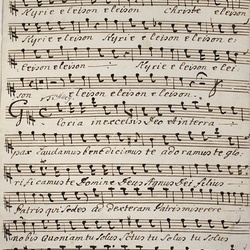 Kyrie eleison eleison Christe eleison
Kyrie eleison Kyrie eleison eleison e:
leison eleison Kyrie eleison elei
son eleison eleison
Gloria in excelsis Deo et in terra
pax laudamus benedicimus te adoramus te glo
rificamus te Domine Deus Agnus Dei filius
Patris qui sedes ad dexteram Patris miserere
nobis Quoniam tu solus Sctus tu solus tu solus